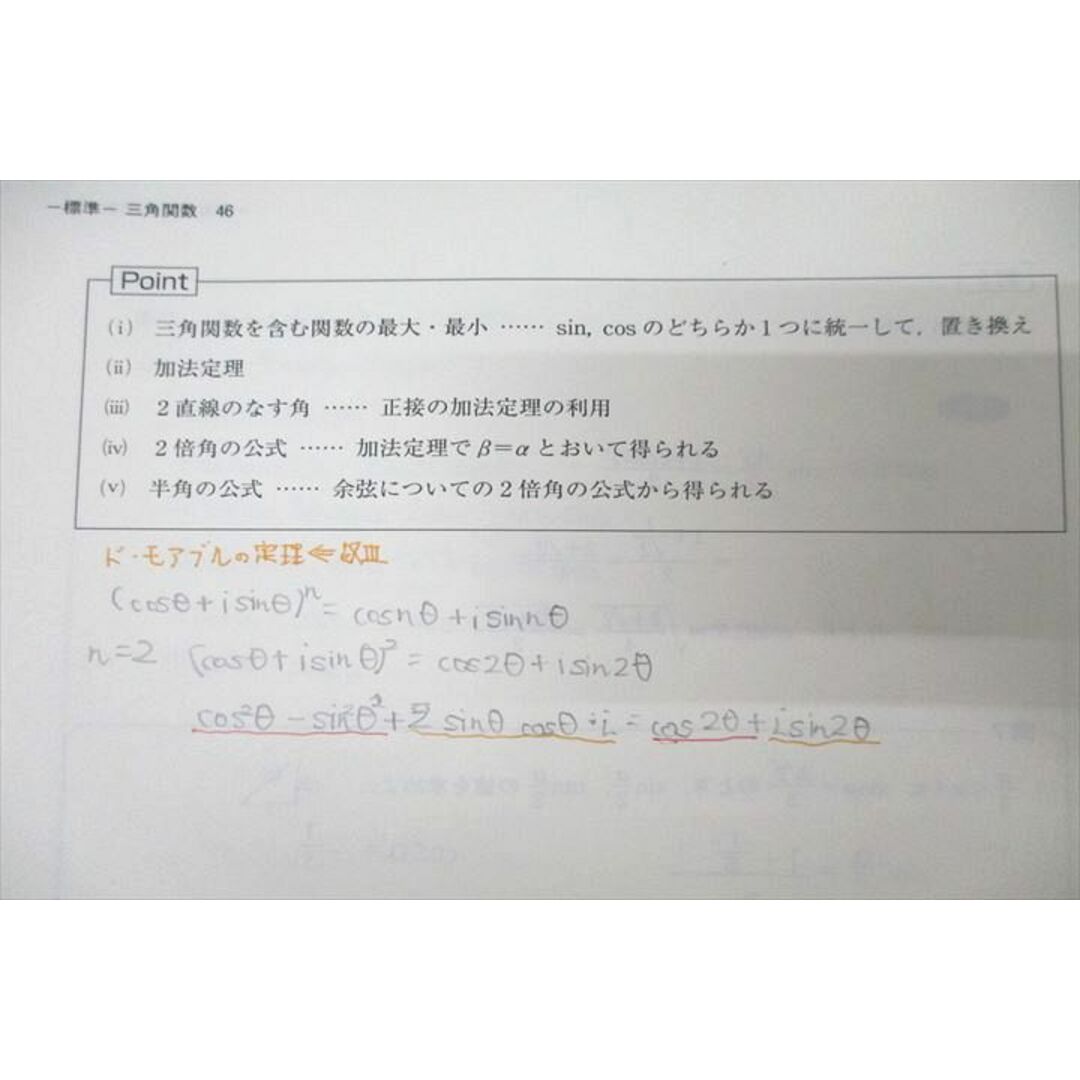 －標準－ 三角関数 46
Point
(i) 三角関数を含む関数の最大・最小 …… sin, cos のどちらか1つに統一して，置き換え
(ii) 加法定理
(iii) 2直線のなす角 …… 正接の加法定理の利用
(iv) 2倍角の公式 …… 加法定理でβ＝αとおいて得られる
(v) 半角の公式 …… 余弦についての2倍角の公式から得られる
ド・モアブルの定理⇐数Ⅲ
(cosθ+isinθ)ⁿ= cosnθ+isinnθ
n=2 (cosθ+isinθ)²= cos2θ+isin2θ
cos²θ-sin²θ+2sinθcosθ・i=cos2θ+isin2θ